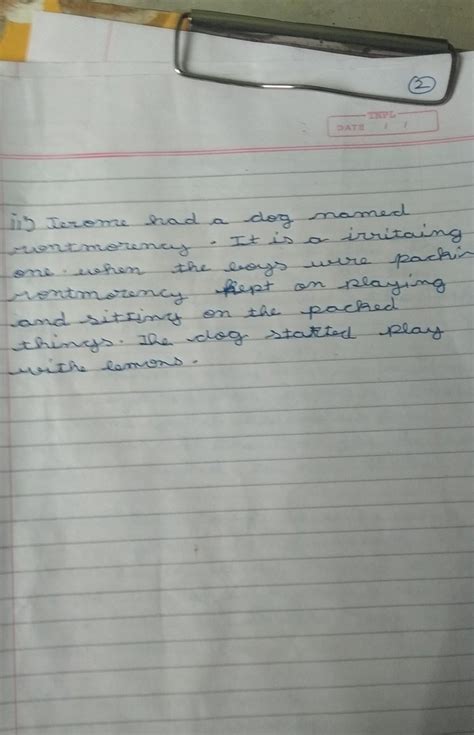 2
DATE / /
ii) Jerome had a dog named
montmorency. It is a irritaing
one. when the boys wire packi
montmorency kept on playing
and sitting on the packed
things. The dog started play
withe lemons.